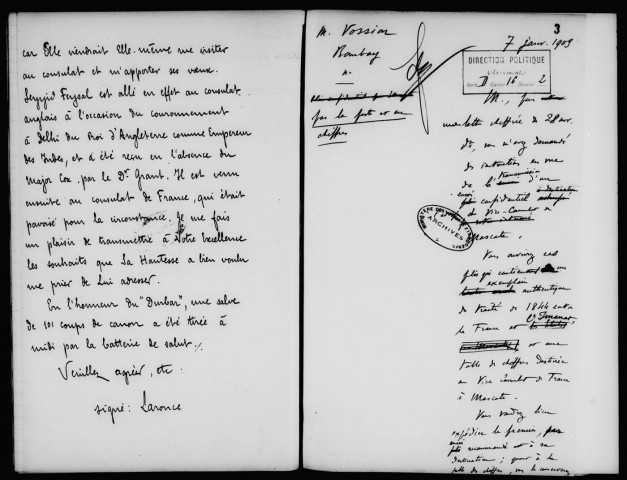 car Elle viendrait Elle-même me visiter
au consulat et m'apporter ses vœux.
Seyyid Feysal est allé en effet au consulat
anglais à l'occasion du couronnement
à Delhi du Roi d'Angleterre comme Empereur
des Indes, et a été reçu en l'absence du
Major Cox, par le Dr Grant. Il est venu
ensuite au consulat de France, qui était
pavoisé pour la circonstance. Je me fais
un plaisir de transmettre à Votre Excellence
les souhaits que Sa Hautesse a bien voulu
me prier de Lui adresser.
En l'honneur du "Durbar", une salve
de 101 coups de canon a été tirée à
midi par la batterie de salut ./.
Veuillez agréer, etc
signé: Laronce
3
M. Vossion
Bombay
7 janv. 1903
DIRECTION POLITIQUE
D 16 2
par la poste et en
chiffres
M., par
une lettre chiffrée du 28
dr, vous m'avez demandé
des instructions en vue
de la transmission d'un
confidentiel
Vice-Consul à
Mascate.
MINISTÈRE DES AFFAIRES ÉTRANGÈRES
ARCHIVES
Vous aurez ces
plis qui contiennent un
exemplaire
authentique
du traité de 1844 entre
la France et
et une
table de chiffres destinée
au Vice Consulat de France
à Mascate.
Vous voudrez bien
expédier le premier,
recommandé à sa
destination; quant à la
table de chiffres, vous le